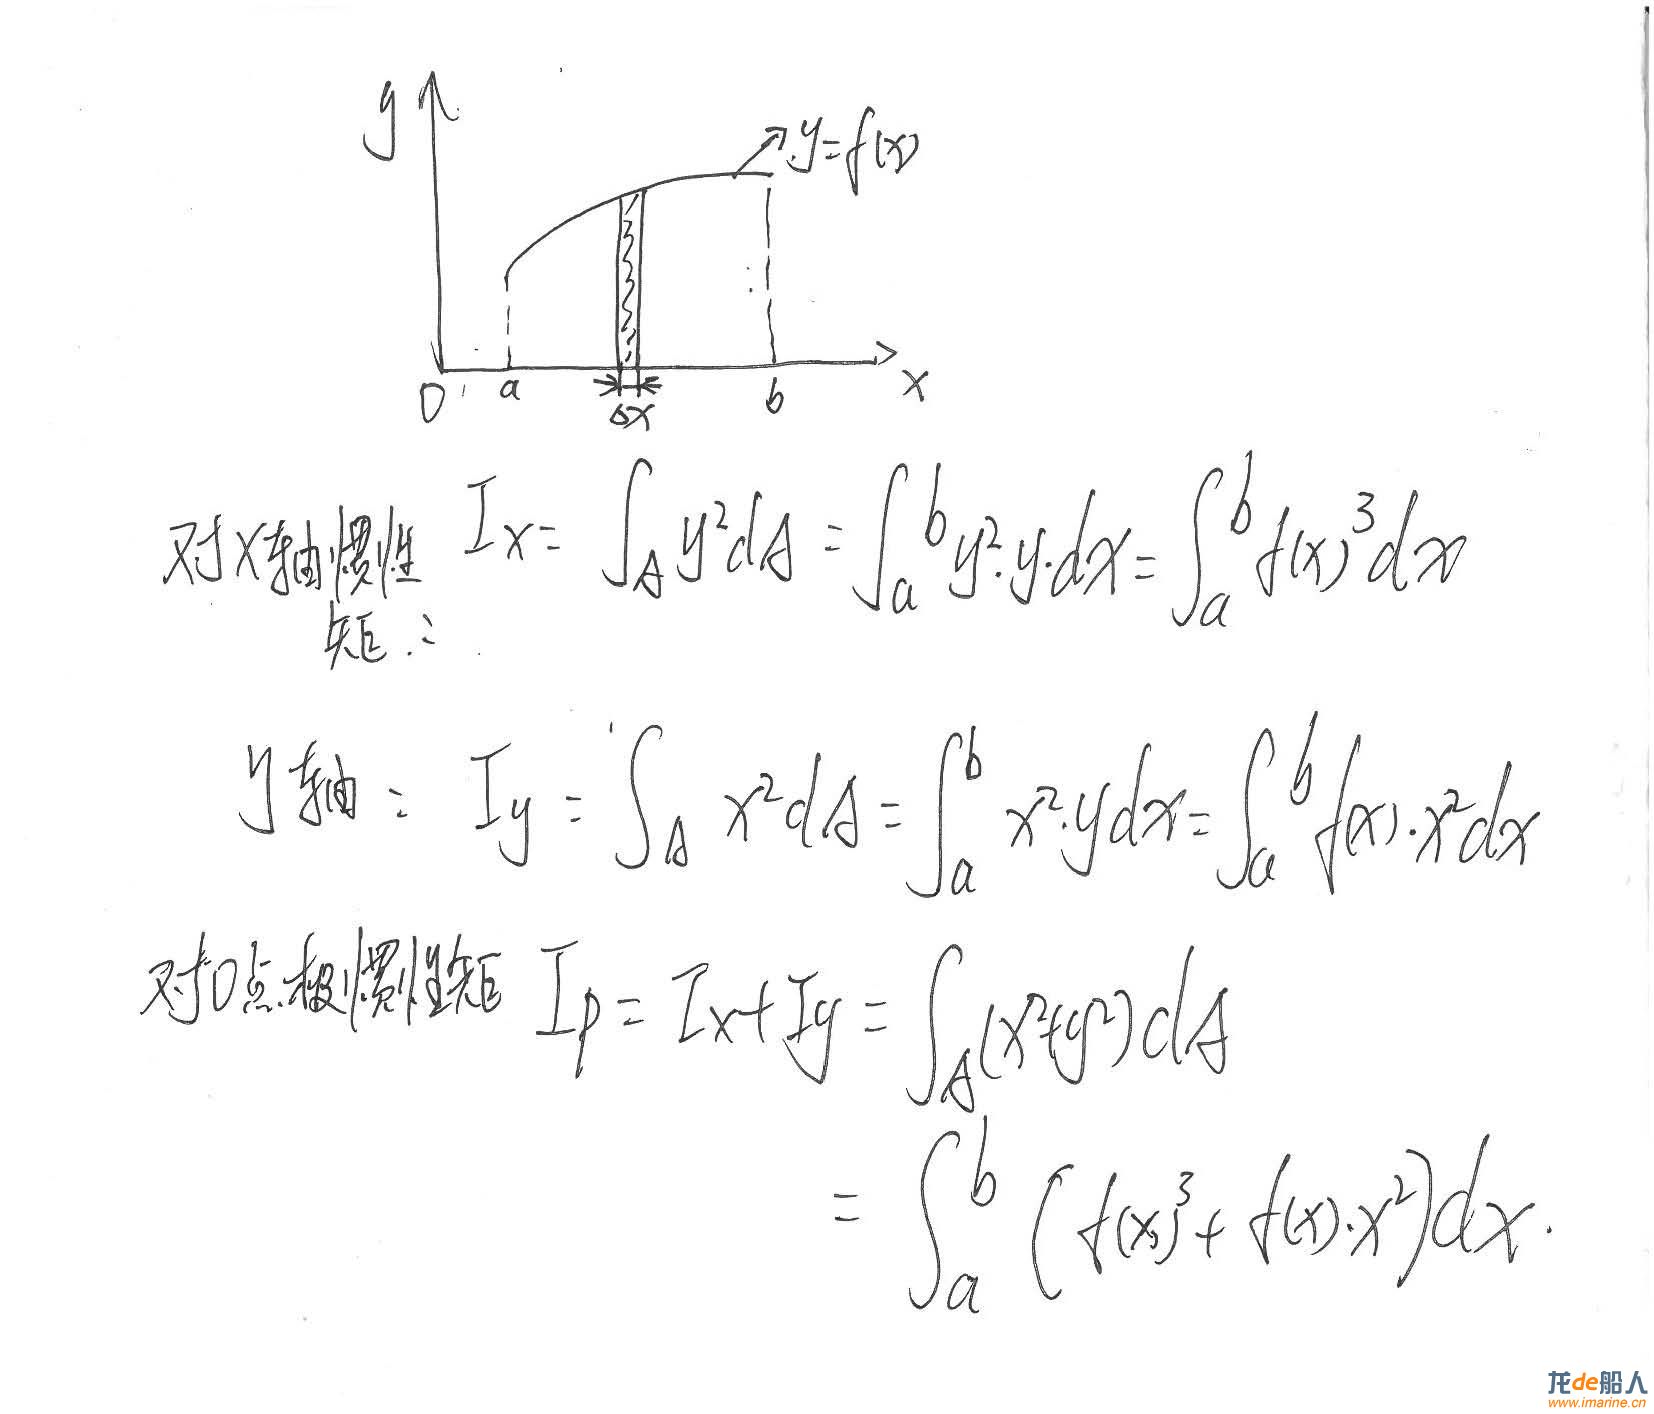 y
y=f(x)
0 a Δx b x
对x轴惯性 Ix= ∫_A y²dA = ∫_a^b y²·y·dx = ∫_a^b f(x)³dx
矩:
y轴: Iy = ∫_A x²dA = ∫_a^b x²·ydx = ∫_a^b f(x)·x²dx
对0点极惯性矩 Ip = Ix+Iy = ∫_A (x²+y²)dA
= ∫_a^b (f(x)³+f(x)·x²)dx.
龙de船人
www.imarine.cn